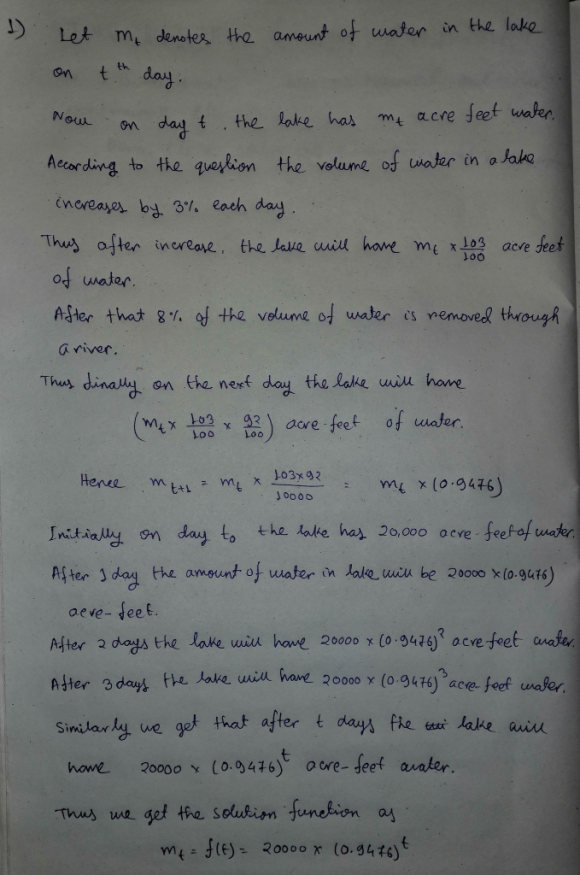 1) Let m_t denotes the amount of water in the lake
on t th day.
Now on day t, the lake has m_t acre feet water.
According to the question the volume of water in a lake
increases by 3% each day.
Thus after increase, the lake will have m_t × 103/100 acre feet
of water.
After that 8% of the volume of water is removed through
a river.
Thus finally on the next day the lake will have
(m_t × 103/100 × 92/100) acre-feet of water.
Hence m_{t+1} = m_t × 103×92/10000 = m_t × (0.9476)
Initially on day t_0 the lake has 20,000 acre-feet of water.
After 1 day the amount of water in lake will be 20000 × (0.9476)
acre-feet.
After 2 days the lake will have 20000 × (0.9476)^2 acre feet water.
After 3 days the lake will have 20000 × (0.9476)^3 acre feet water.
Similarly we get that after t days the lake will
have 20000 × (0.9476)^t acre-feet water.
Thus we get the solution function as
m_t = f(t) = 20000 × (0.9476)^t